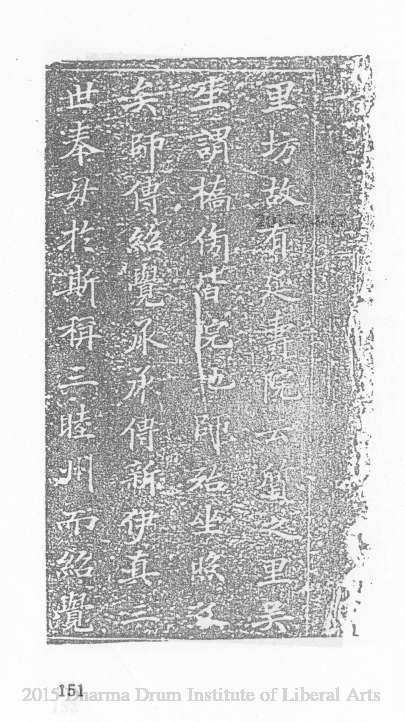 里坊故有延壽院云盤之里吴
坐謂橋傍借院也師始坐照
矣師傳紹覺承承傳新伊真二
世奉毋於斯稱三睦州而紹覺
151
2015 Dharma Drum Institute of Liberal Arts